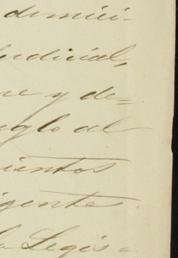 domici-
Judicial,
me y de=
reglo al
cientos
igentes
la Legis=